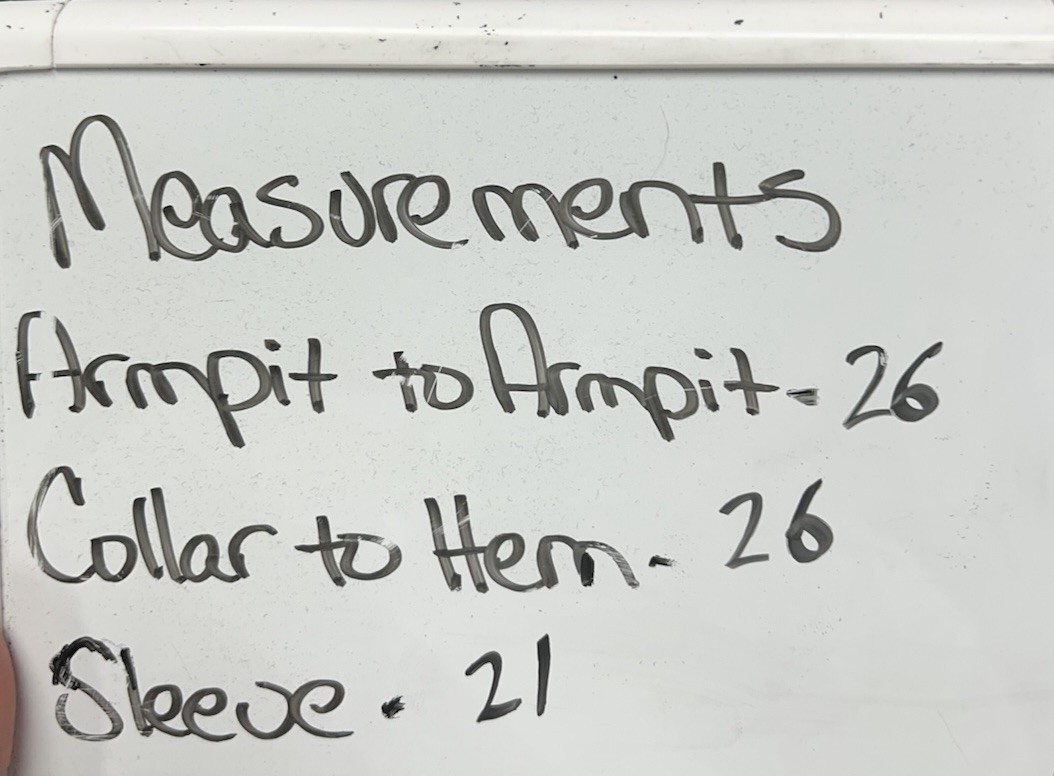 Measurements
Armpit to Armpit - 26
Collar to Hem - 26
Sleeve - 21